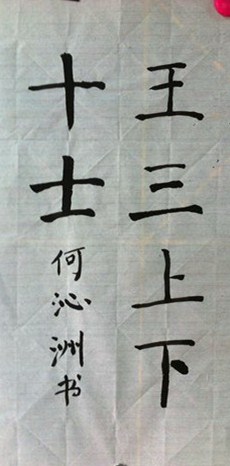 王三上下
十士
何沁洲书